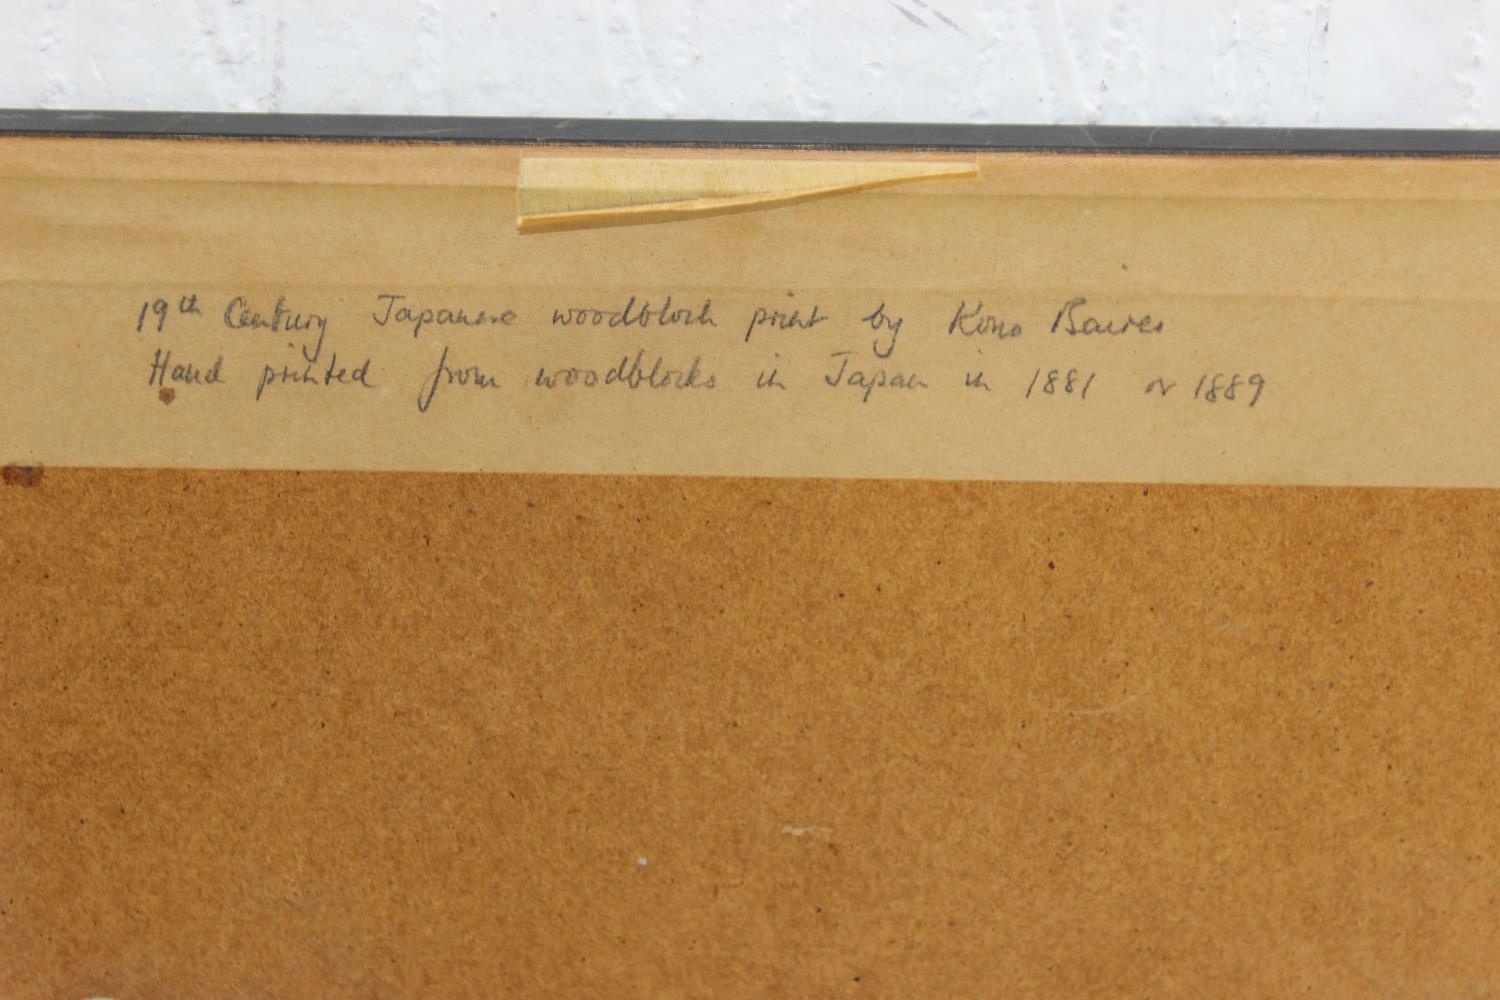 19th Century Japanese woodblock print by Kono Bairei
Hand printed from woodblocks in Japan in 1881 or 1889